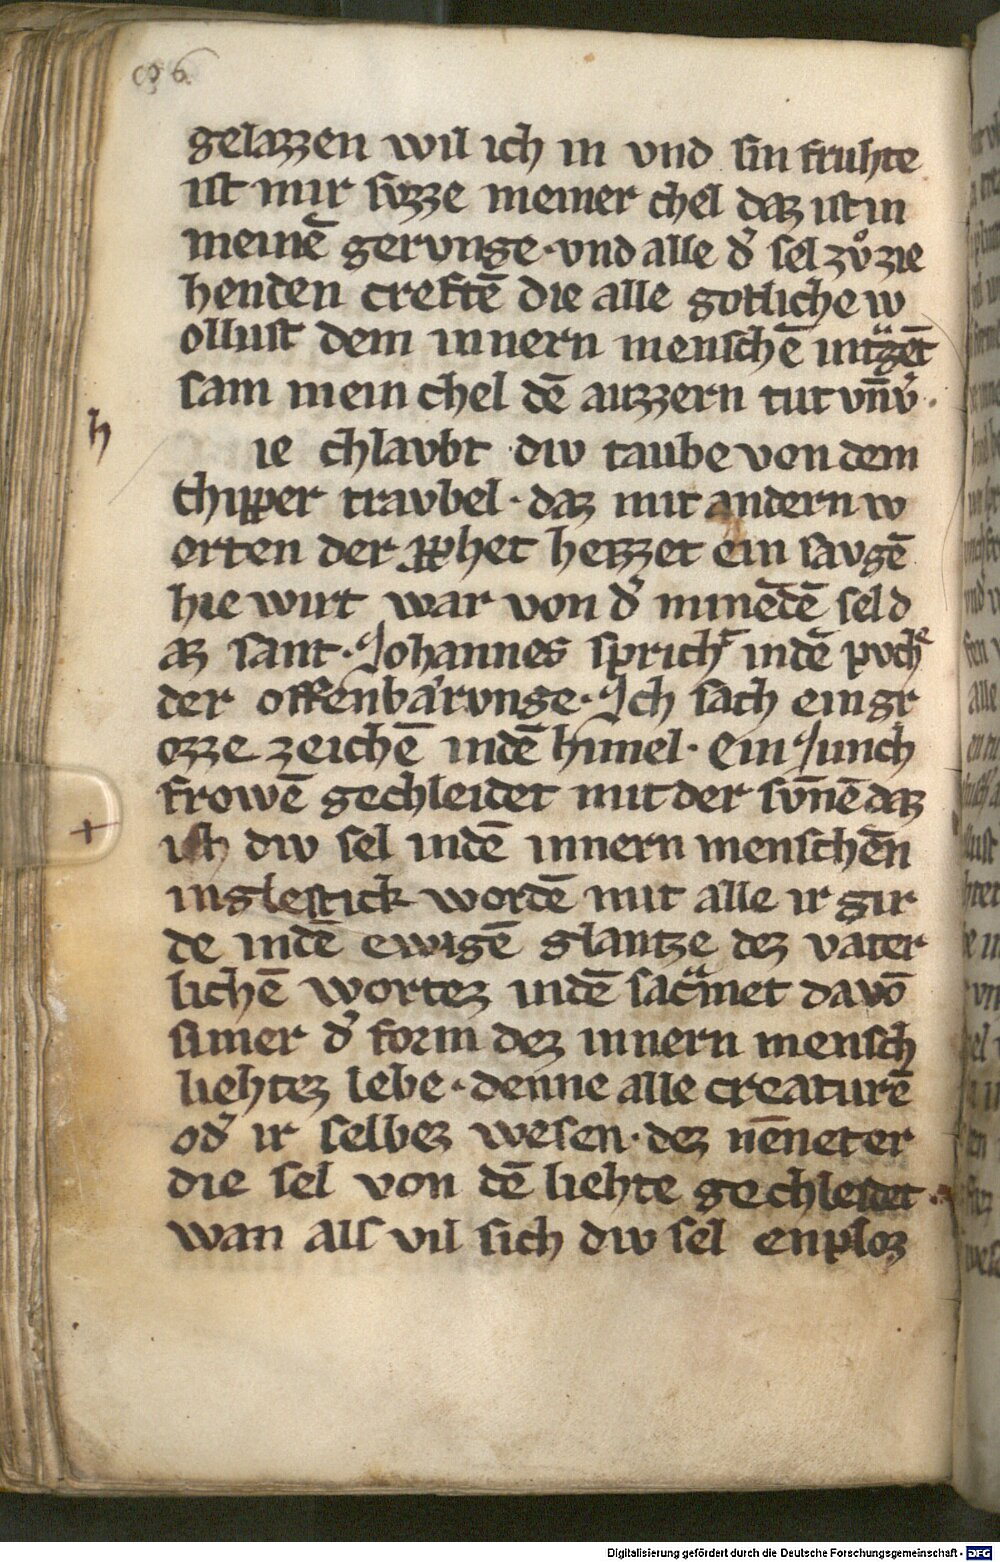 gelazzen wil ich in vnd sin fruhte
ist mir sv̊zze meiner chel daz ist in
meinē gervnge · vnd alle d̕ sel zv̊ zie
henden creftē die alle gotliche w
ollust dem innern menschē
sam mein chel dē auzzern tut
h
ie chlavbt div taube von dem
travbel · daz mit andern w
orten der heizzet ein savgē
hie wirt war von d̕ minēdē sel d
az sant · Johannes sprich indē pvch
der offenbarvnge · Ich sach ein gr
ozze zeichē indē himel · Ein Junch
frowē gechleidet mit der svn̄ē daz
ist div sel indē innern menschēn
inglestick wordē mit alle ir gir
de indē ewigē glantze dez vater
lichē wortez indē davō
si mer d̕ form dez innern mensch
liehtez lebe · denne alle creaturē
od̕ ir selbez wesen · dez nēnet er
die sel von dē liehte gechleidet ·
wan als vil sich div sel enploz
Digitalisierung gefördert durch die Deutsche Forschungsgemeinschaft - DFG